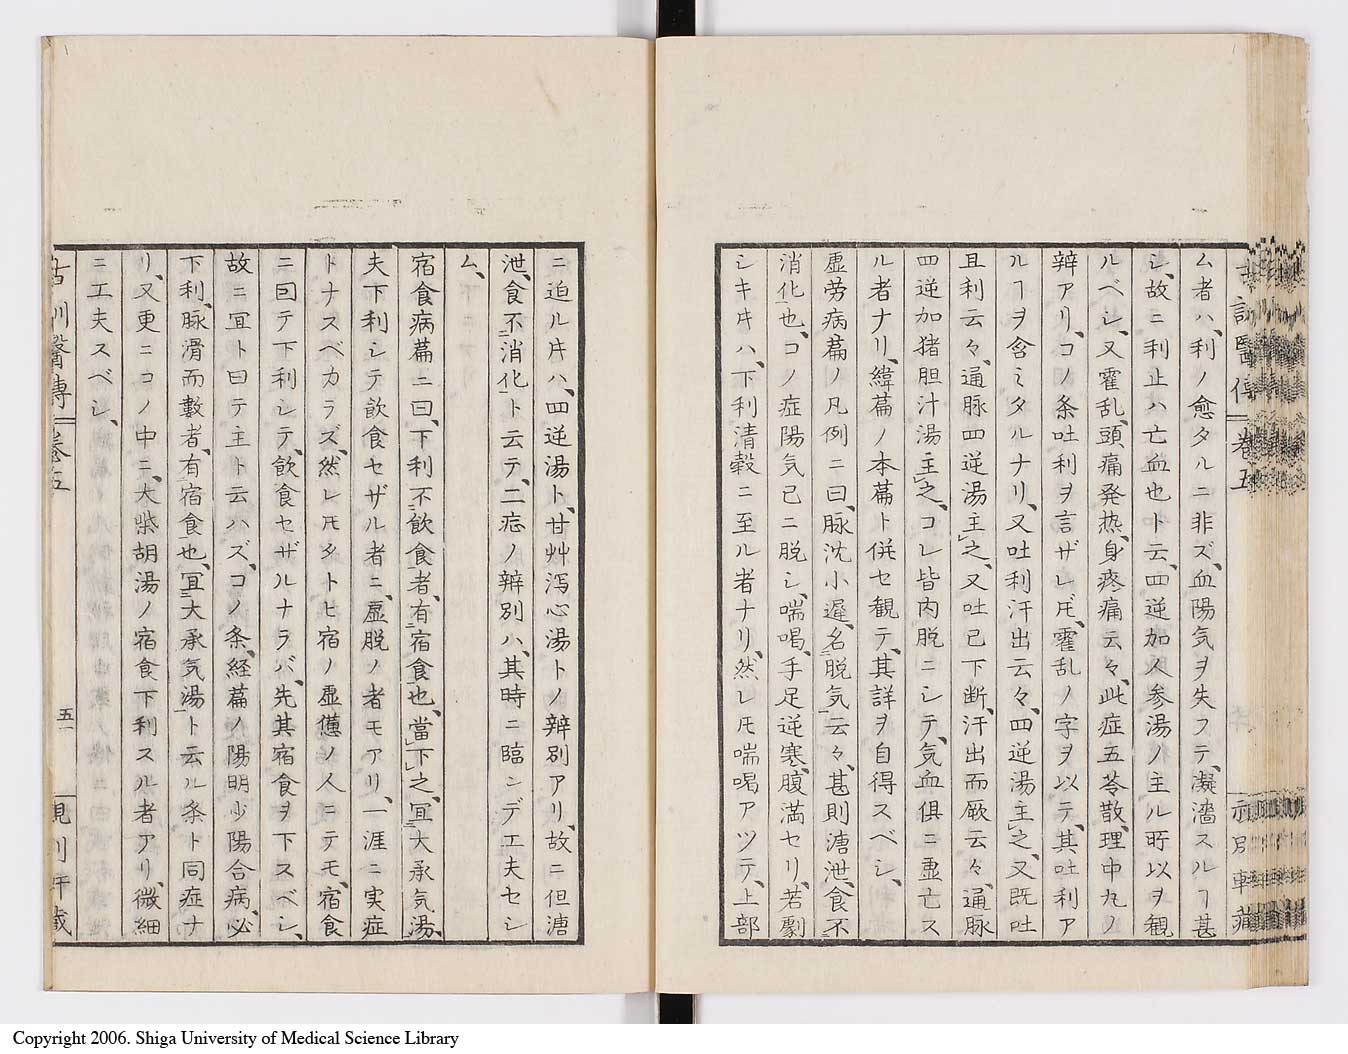 ム者ハ、利ノ愈タルニ非ズ、血陽気ヲ失フテ、凝濇スルヿ甚
シ、故ニ利止ハ亡血也ト云、四逆加人参湯ノ主ル所以ヲ観
ルベシ、又霍乱、頭痛発熱、身疼痛云々、此症五苓散、理中丸ノ
辨アリ、コノ条吐利ヲ言ザレ𪜈、霍乱ノ字ヲ以テ、其吐利ア
ルヿヲ含ミタルナリ、又吐利汗出云々、四逆湯主之、又既吐
且利云々、通脉四逆湯主之、又吐已下断、汗出而厥云々、通脉
四逆加猪胆汁湯主之、コレ皆内脱ニシテ、気血倶ニ虚亡ス
ル者ナリ、緯篇ノ本篇ト併セ観テ、其詳ヲ自得スベシ、
虚労病篇ノ凡例ニ曰、脉沈小遲、名脱気云々、甚則溏泄、食不
消化也、コノ症陽気已ニ脱シ、喘喝、手足逆寒、腹満セリ、若劇
シキ𪜈ハ、下利清穀ニ至ル者ナリ、然レ𪜈喘喝アツテ、上部
ニ迫ル𪜈ハ、四逆湯ト、甘艸瀉心湯トノ辨別アリ、故ニ但溏
泄、食不消化ト云テ、二症ノ辨別ハ、其時ニ臨ンデ工夫セシ
ム、
宿食病篇ニ曰、下利不飲食者、有宿食也、當下之、宜大承気湯、
夫下利シテ飲食セザル者ニ、虚脱ノ者モアリ、一涯ニ実症
トナスベカラズ、然レ𪜈タトヒ宿ノ虚憊ノ人ニテモ、宿食
ニ因テ下利シテ、飲食セザルナラバ、先其宿食ヲ下スベシ、
故ニ宜ト曰テ主ト云ハズ、コノ条、経篇ノ陽明少陽合病、必
下利、脉滑而數者、有宿食也、宜大承気湯ト云ル条ト同症ナ
リ、又更ニコノ中ニ、大柴胡湯ノ宿食下利スル者アリ、微細
ニ工夫スベシ、
古訓醫傳 卷五
五一